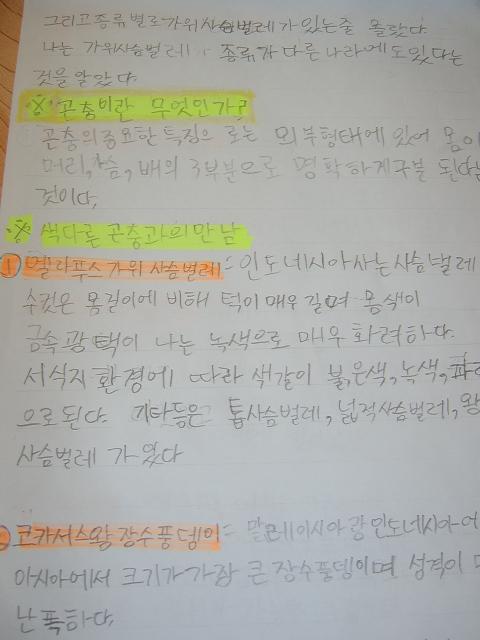 그리고 종류별로 가위사슴벌레가 있는줄 몰랐다
나는 가위사슴벌레 종류가 다른 나라에도 있다는
것을 알았다.
※ 곤충이란 무엇인가?
곤충의 중요한 특징으로는 외부형태에 있어 몸이
머리, 가슴, 배의 3부분으로 명확하게 구분 된다는
것이다.
※ 색다른 곤충과의 만남
① 멜라푸스가위 사슴벌레 = 인도네시아사는 사슴벌레
수컷은 몸길이에 비해 턱이 매우 길며 몸색이
금속 광택이 나는 녹색으로 매우 화려하다.
서식지 환경에 따라 색갈이 붉은색, 녹색, 파
으로 된다. 기타등은 톱사슴벌레, 넓적사슴벌레, 왕
사슴벌레 가 있다
코카서스왕장수풍뎅이 = 말레이시아랑 인도네시아에
아시아에서 크기가 가장 큰 장수풍뎅이며 성격이
난폭하다.